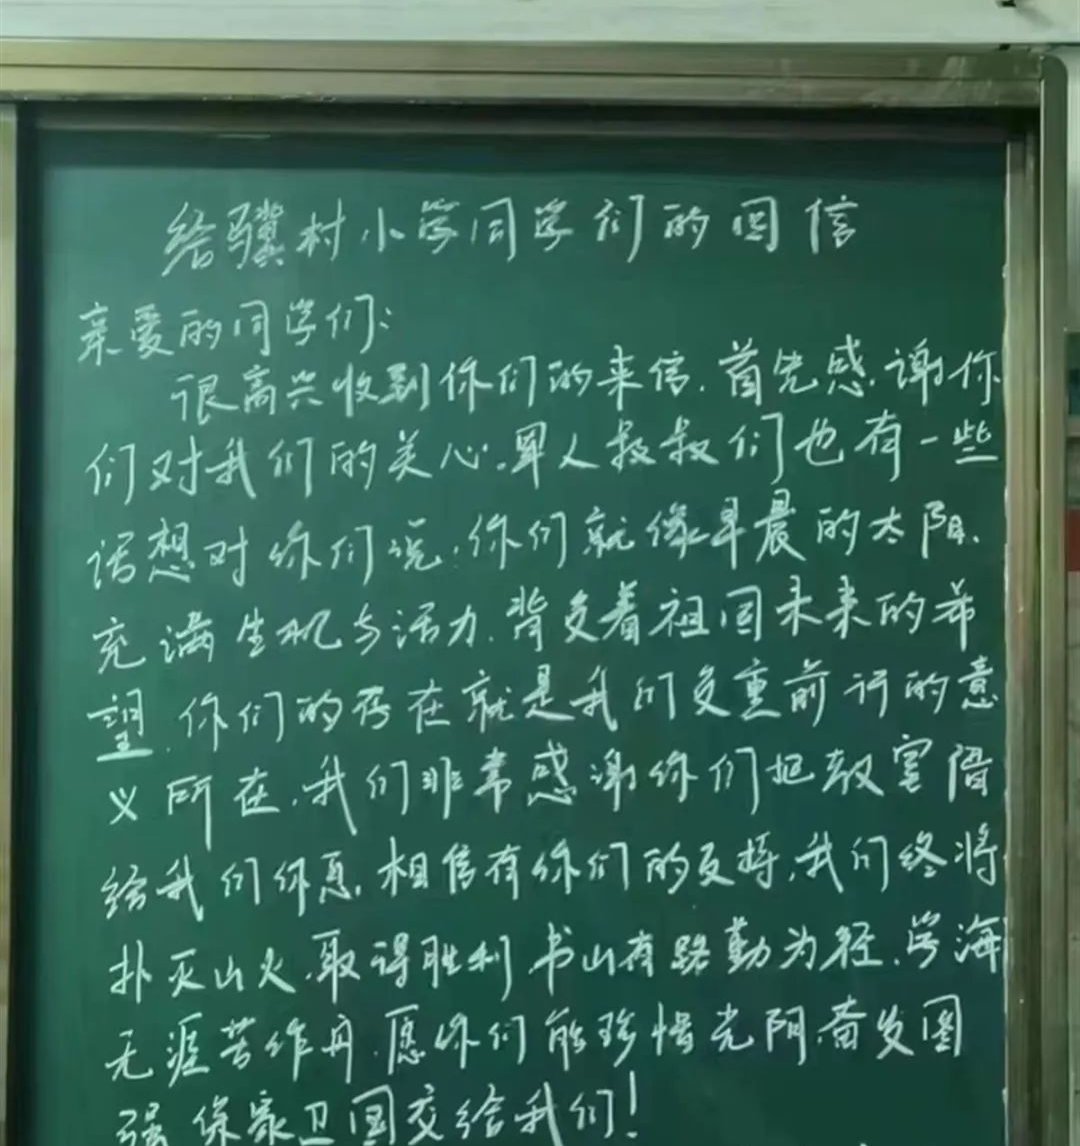 给骥村小学同学们的回信
亲爱的同学们:
很高兴收到你们的来信,首先感谢你
们对我们的关心。军人叔叔们也有一些
话想对你们说:你们就像早晨的太阳,
充满生机与活力,背负着祖国未来的希
望,你们的存在就是我们负重前行的意
义所在,我们非常感谢你们把教室腾
给我们休息,相信有你们的支持,我们终将
扑灭山火,取得胜利,书山有路勤为径,学海
无涯苦作舟,愿你们能珍惜光阴,奋发图
强,保家卫国交给我们!